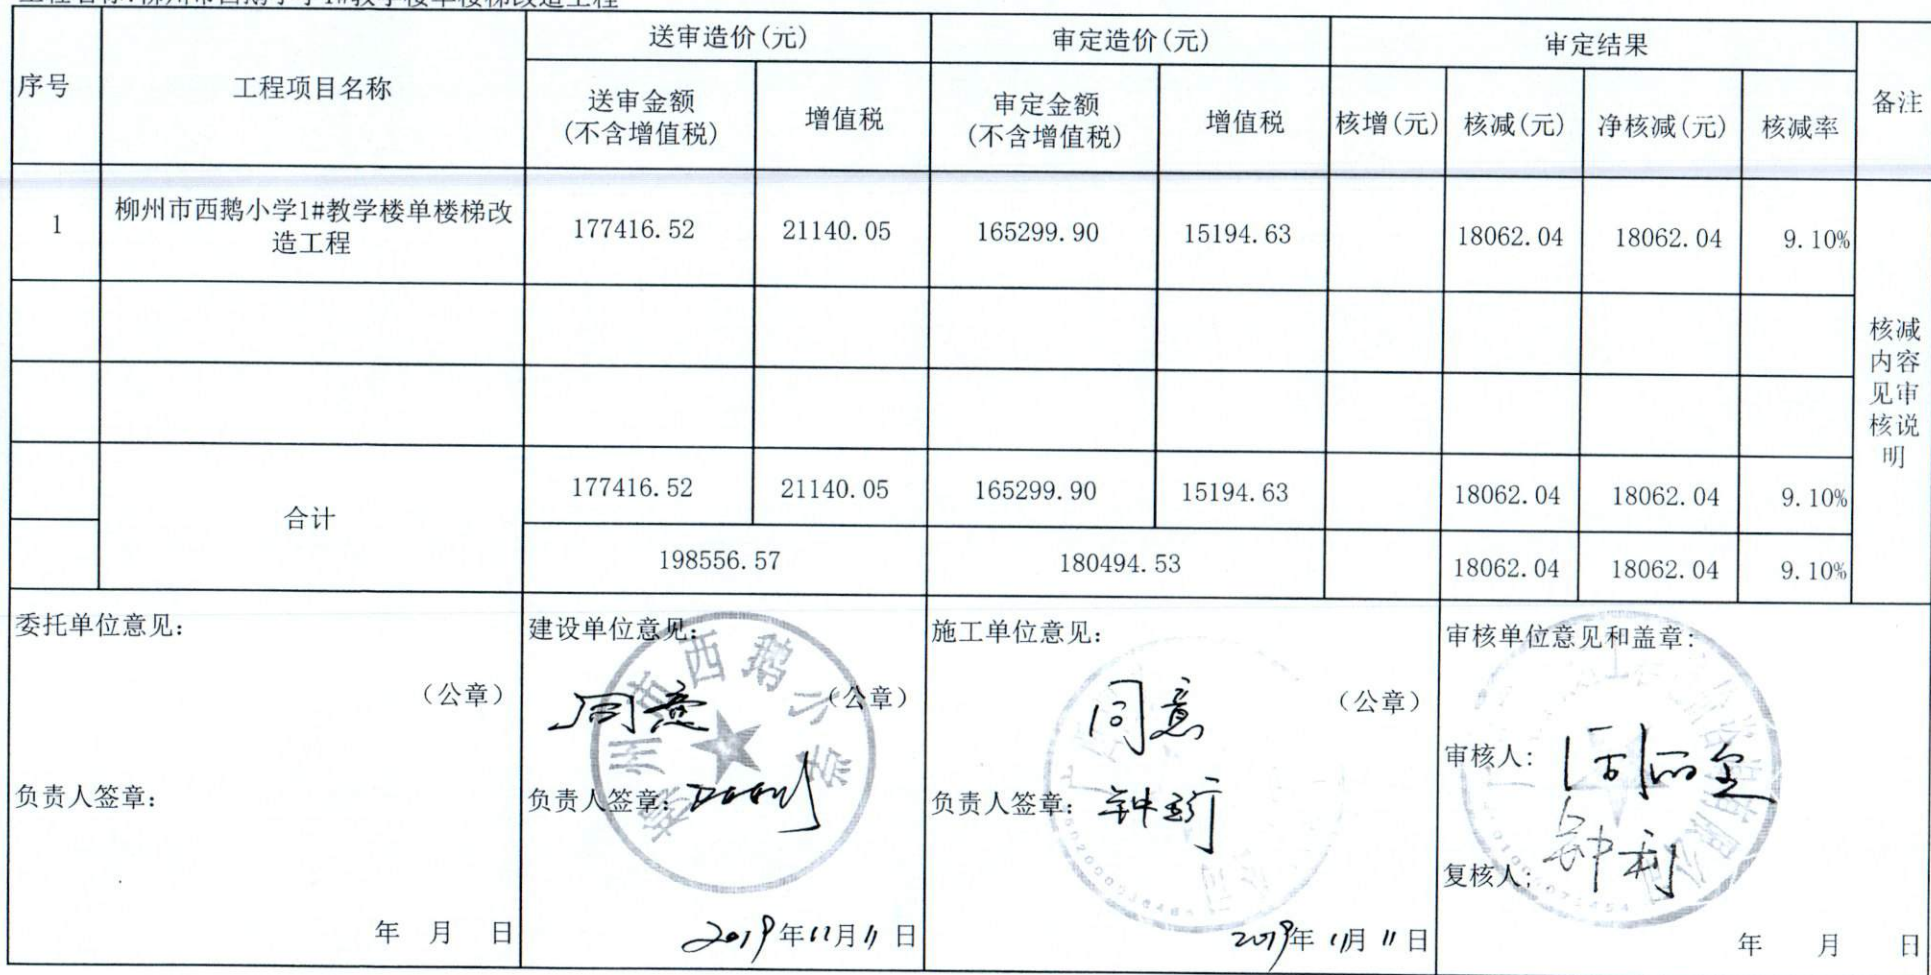 工程名称:柳州市西鹅小学1#教学楼单楼梯改造工程
序号
工程项目名称
送审造价(元)
审定造价(元)
审定结果
备注
送审金额
(不含增值税)
增值税
审定金额
(不含增值税)
增值税
核增(元)
核减(元)
净核减(元)
核减率
1
柳州市西鹅小学1#教学楼单楼梯改
造工程
177416.52
21140.05
165299.90
15194.63
18062.04
18062.04
9.10%
核减
内容
见审
核说
明
合计
177416.52
21140.05
165299.90
15194.63
18062.04
18062.04
9.10%
198556.57
180494.53
18062.04
18062.04
9.10%
委托单位意见:
(公章)
负责人签章:
年 月 日
建设单位意见:
同意
(公章)
负责人签章:
柳州市西鹅小学
2019年11月11日
施工单位意见:
同意
(公章)
负责人签章:
2019年11月11日
审核单位意见和盖章:
审核人:
复核人:
钟利
年 月 日